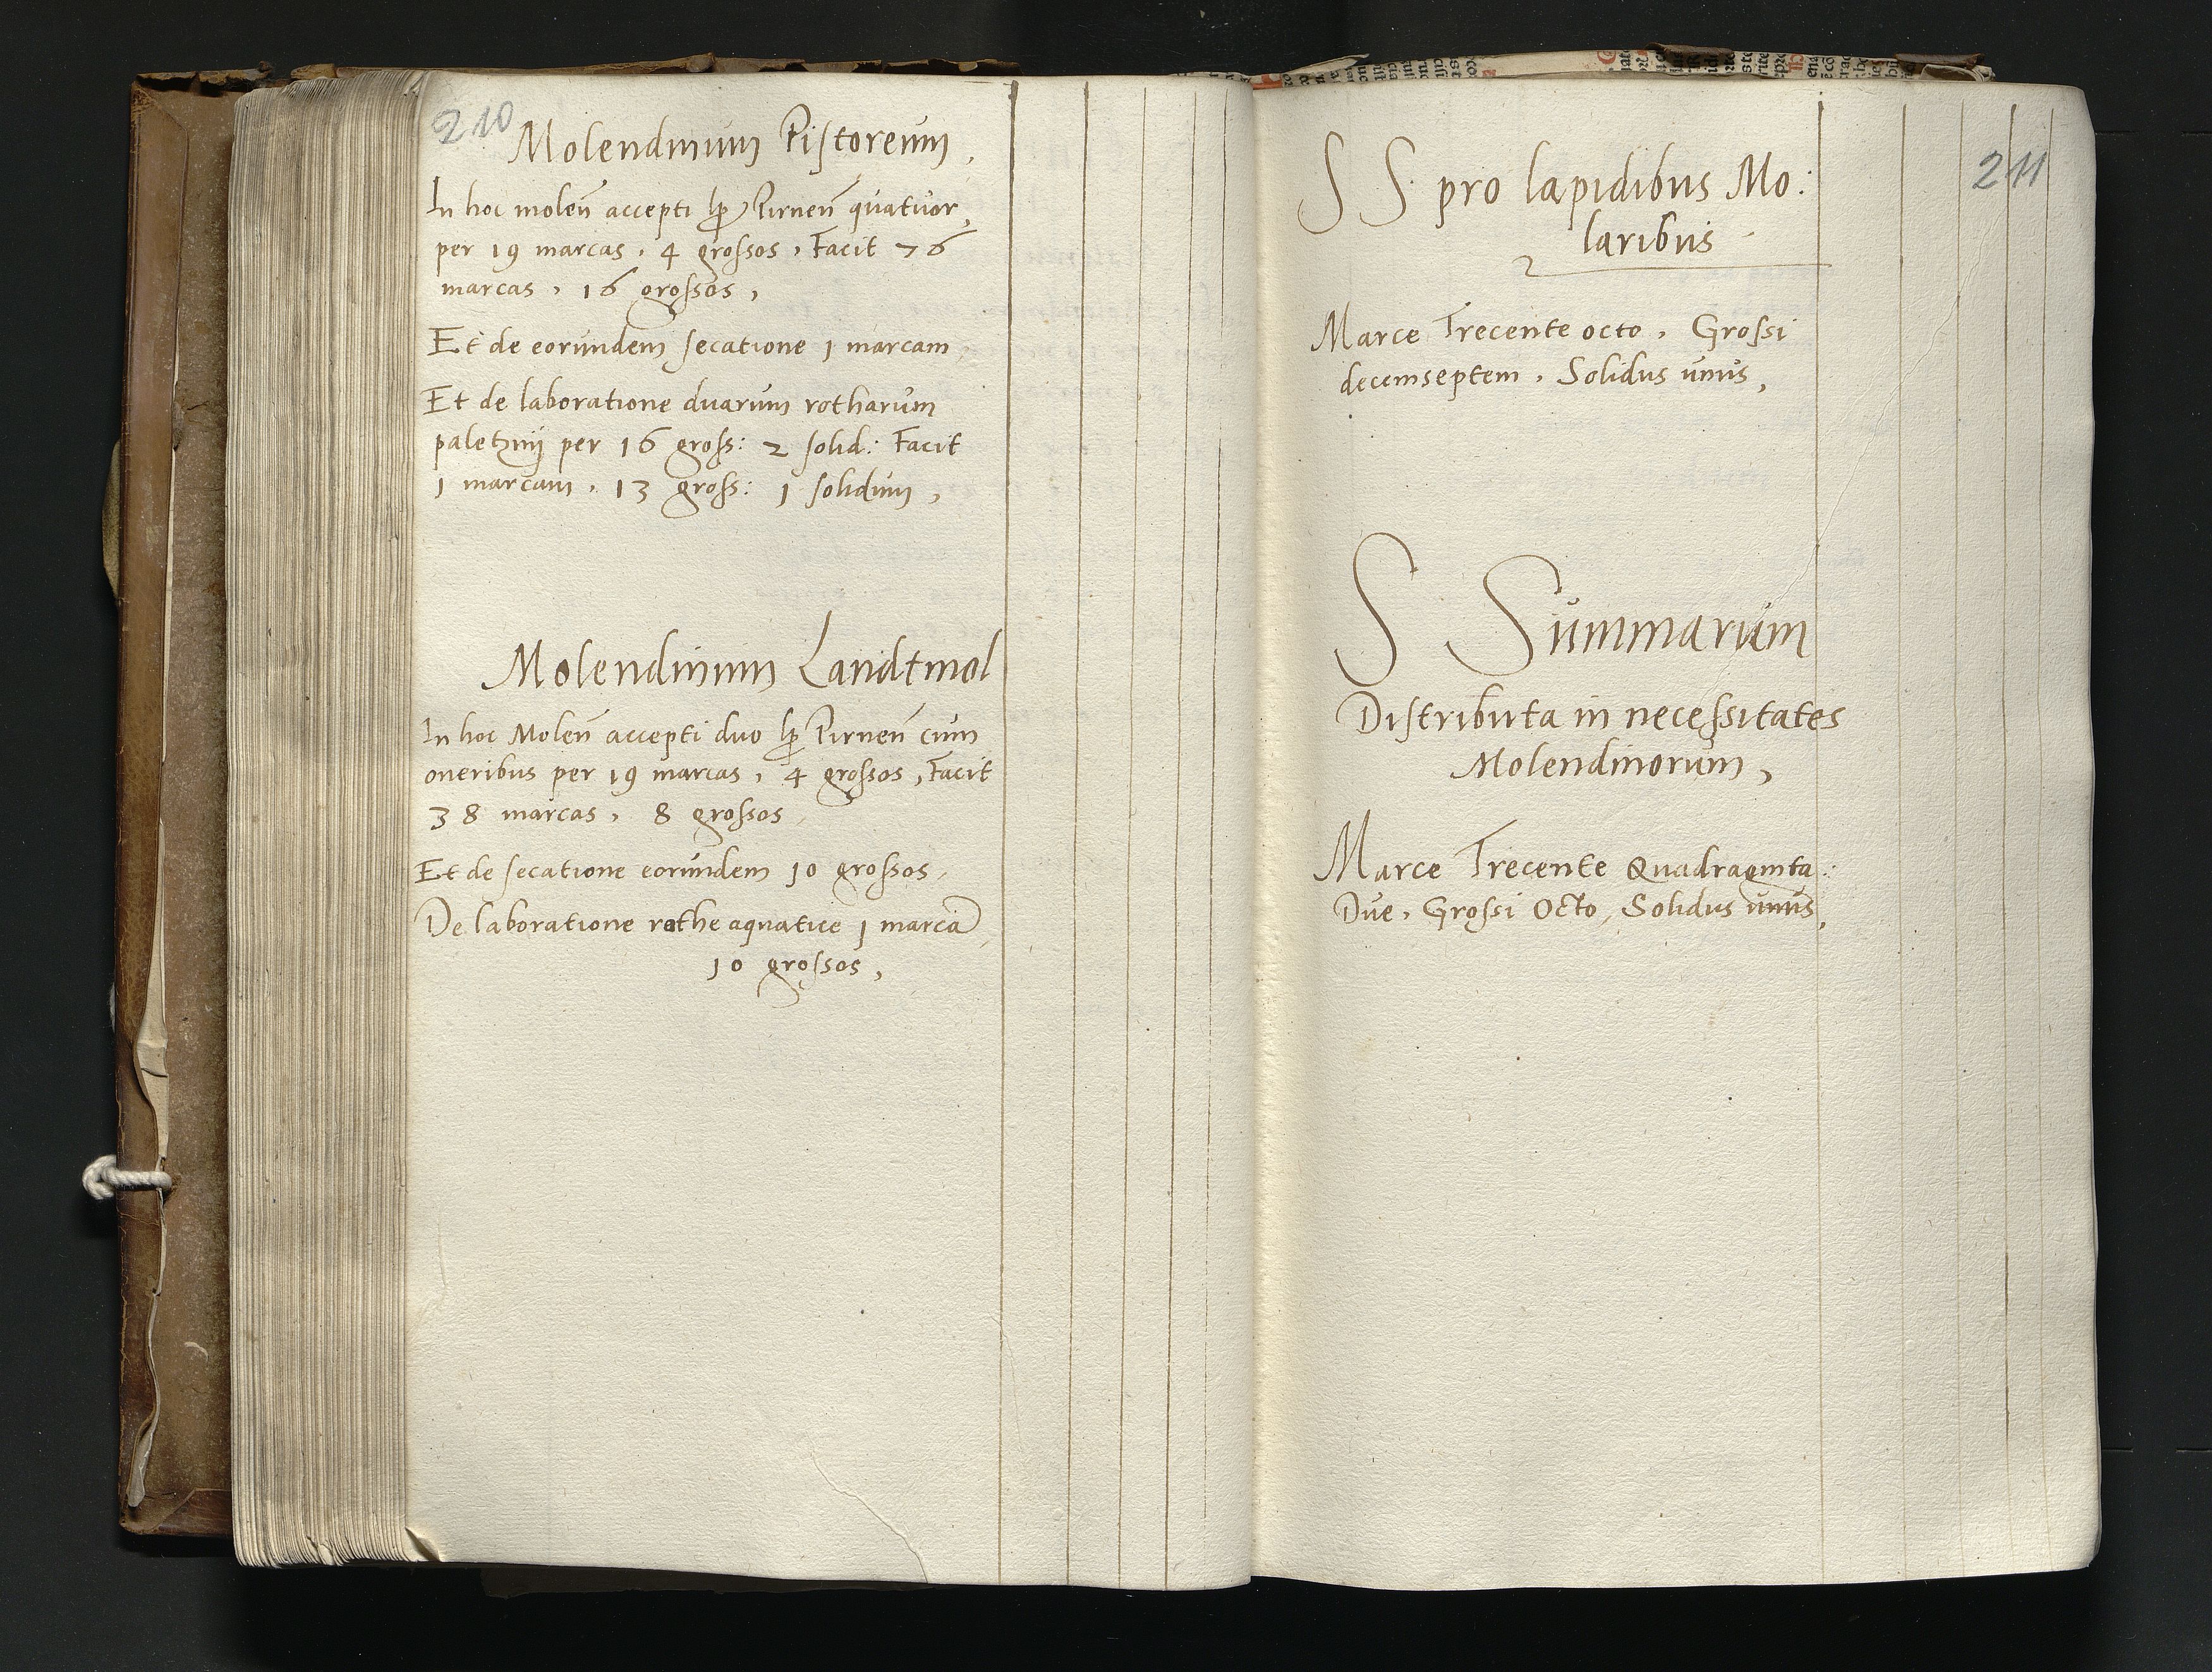 210
Molendinum Pistoreum,
In hoc molen̄ accepti lp Pirnen̄ quatuor,
per 19 marcas, 4 grossos, Facit 76
marcas, 16 grossos,
Et de eorundem secatione 1 marcam,
Et de laboratione duarum rotharum
per 16 gross: 2 solid: Facit
1 marcam, 13 gross: 1 solidum,
Molendinum Landtmol
In hoc Molen̄ accepti duo lp Pirnen̄ cum
oneribus per 19 marcas, 4 grossos, Facit
38 marcas, 8 grossos,
Et de secatione eorundem 10 grossos,
De laboratione rothe aquatice 1 marcā,
10 grossos,
211
S S pro lapidibus Mo:
laribus
Marce Trecente octo, Grossi
decemseptem, Solidus unus,
S Summarum
Distributa in necessitates
Molendinorum,
Marce Trecente Quadraginta:
Due, Grossi Octo, Solidus unus,